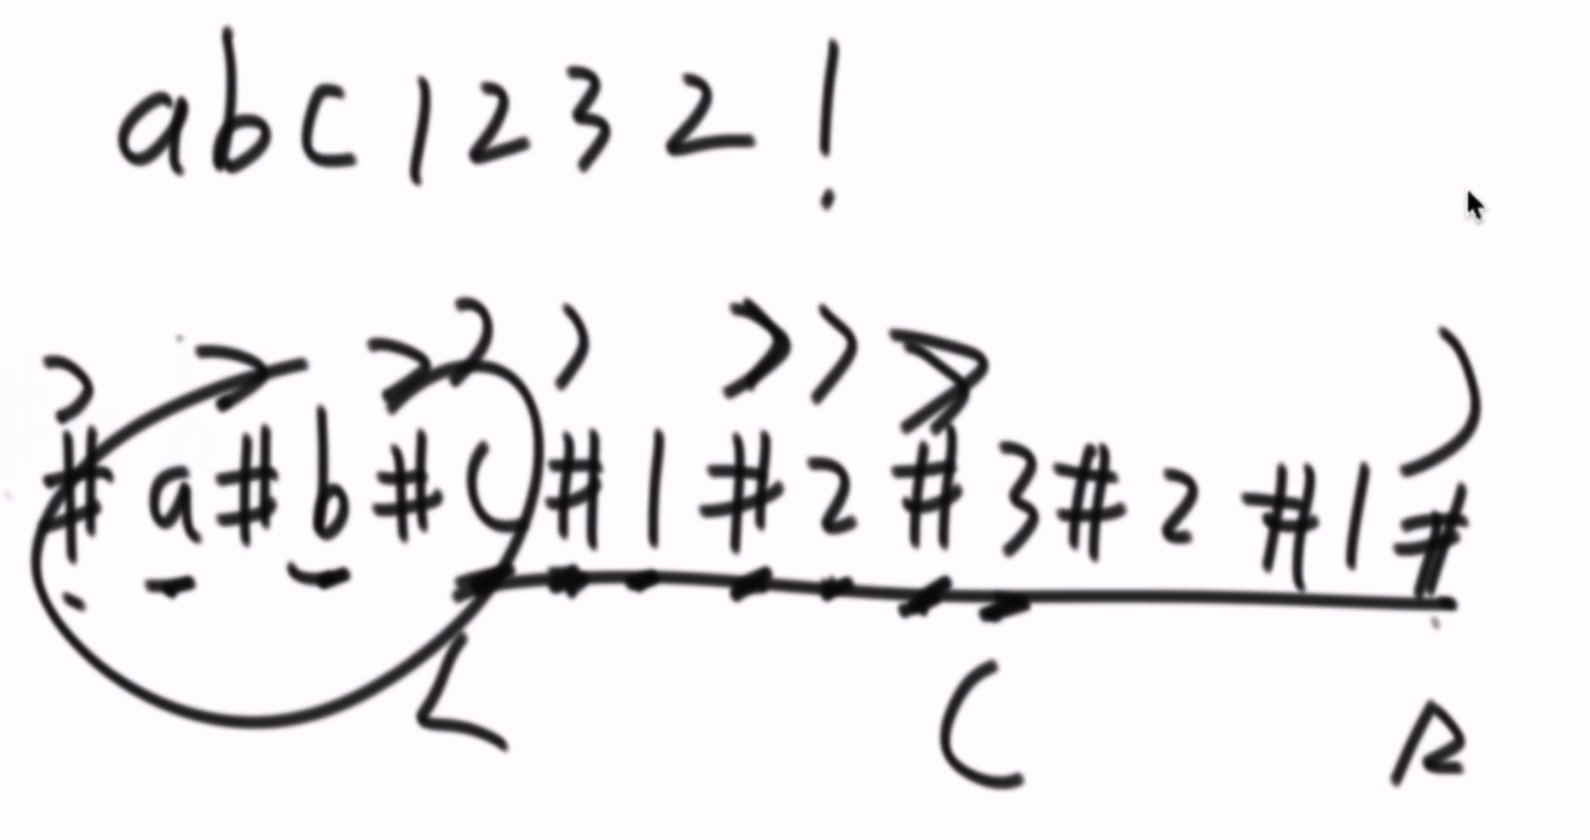 abc1232!
#a#b#c#1#2#3#2#1#
L C R